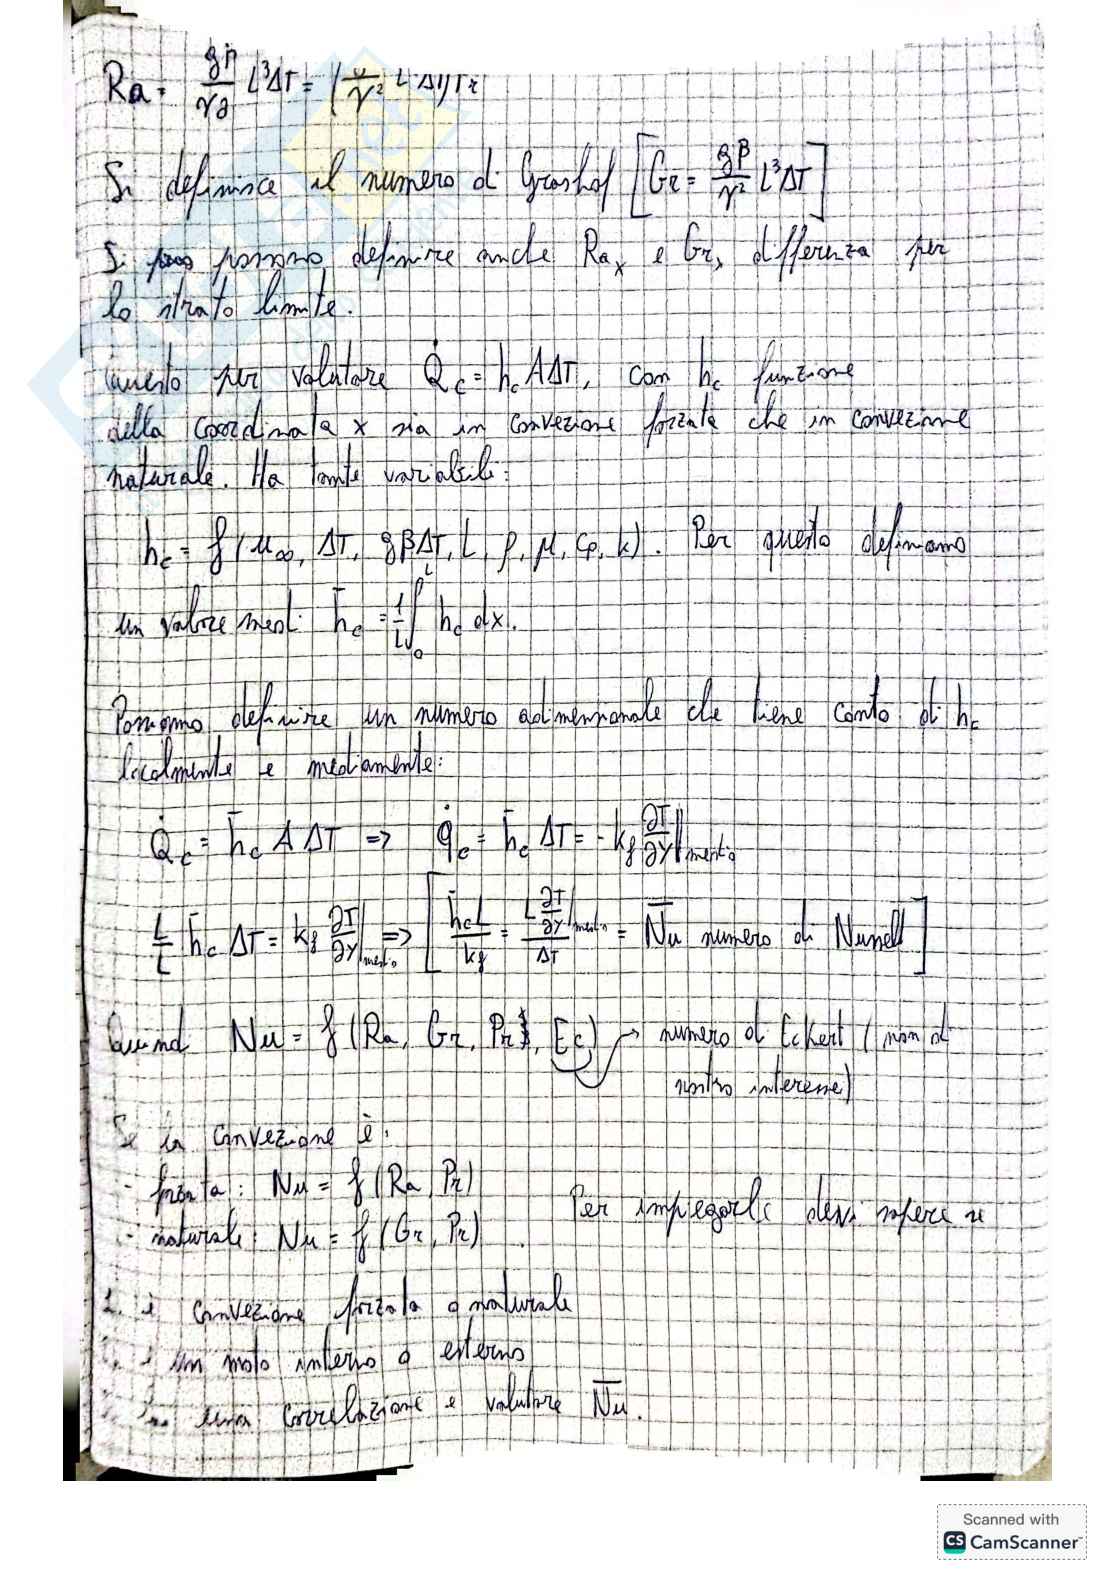 Ra = gβ/γα L³ΔT = (g/γ² L ΔT) Pr
Si definisce il numero di Grashof [Gr = gβ/γ² L³ΔT]
Si possono definire anche Raₓ e Grₓ, differenza per
lo strato limite.
Questo per valutare Q̇c = hc A ΔT, con hc funzione
della coordinata x sia in convezione forzata che in convezione
naturale. Ha tante variabili:
hc = f(u∞, ΔT, gβΔT, L, ρ, μ, cp, k). Per questo definiamo
un valore medi: h̄c = 1/L ∫₀ᴸ hc dx.
Possiamo definire un numero adimensionale che tiene conto di hc
localmente e mediamente:
Q̇c = h̄c A ΔT => q̇c = h̄c ΔT = - kf ∂T/∂y|medio
L/L h̄c ΔT = kf ∂T/∂y|medio => [h̄cL/kf = L ∂T/∂y|medio / ΔT = N̄u numero di Nusselt]
Quindi Nu = f(Ra, Gr, Pr, Ec) → numero di Eckert (non di
nostro interesse)
Se la convezione è:
- forzata: Nu = f(Ra, Pr)
- naturale: Nu = f(Gr, Pr). Per impiegarli devi sapere se
1. è convezione forzata o naturale
è un moto interno o esterno
una correlazione e valutare N̄u.
Scanned with
CS CamScanner